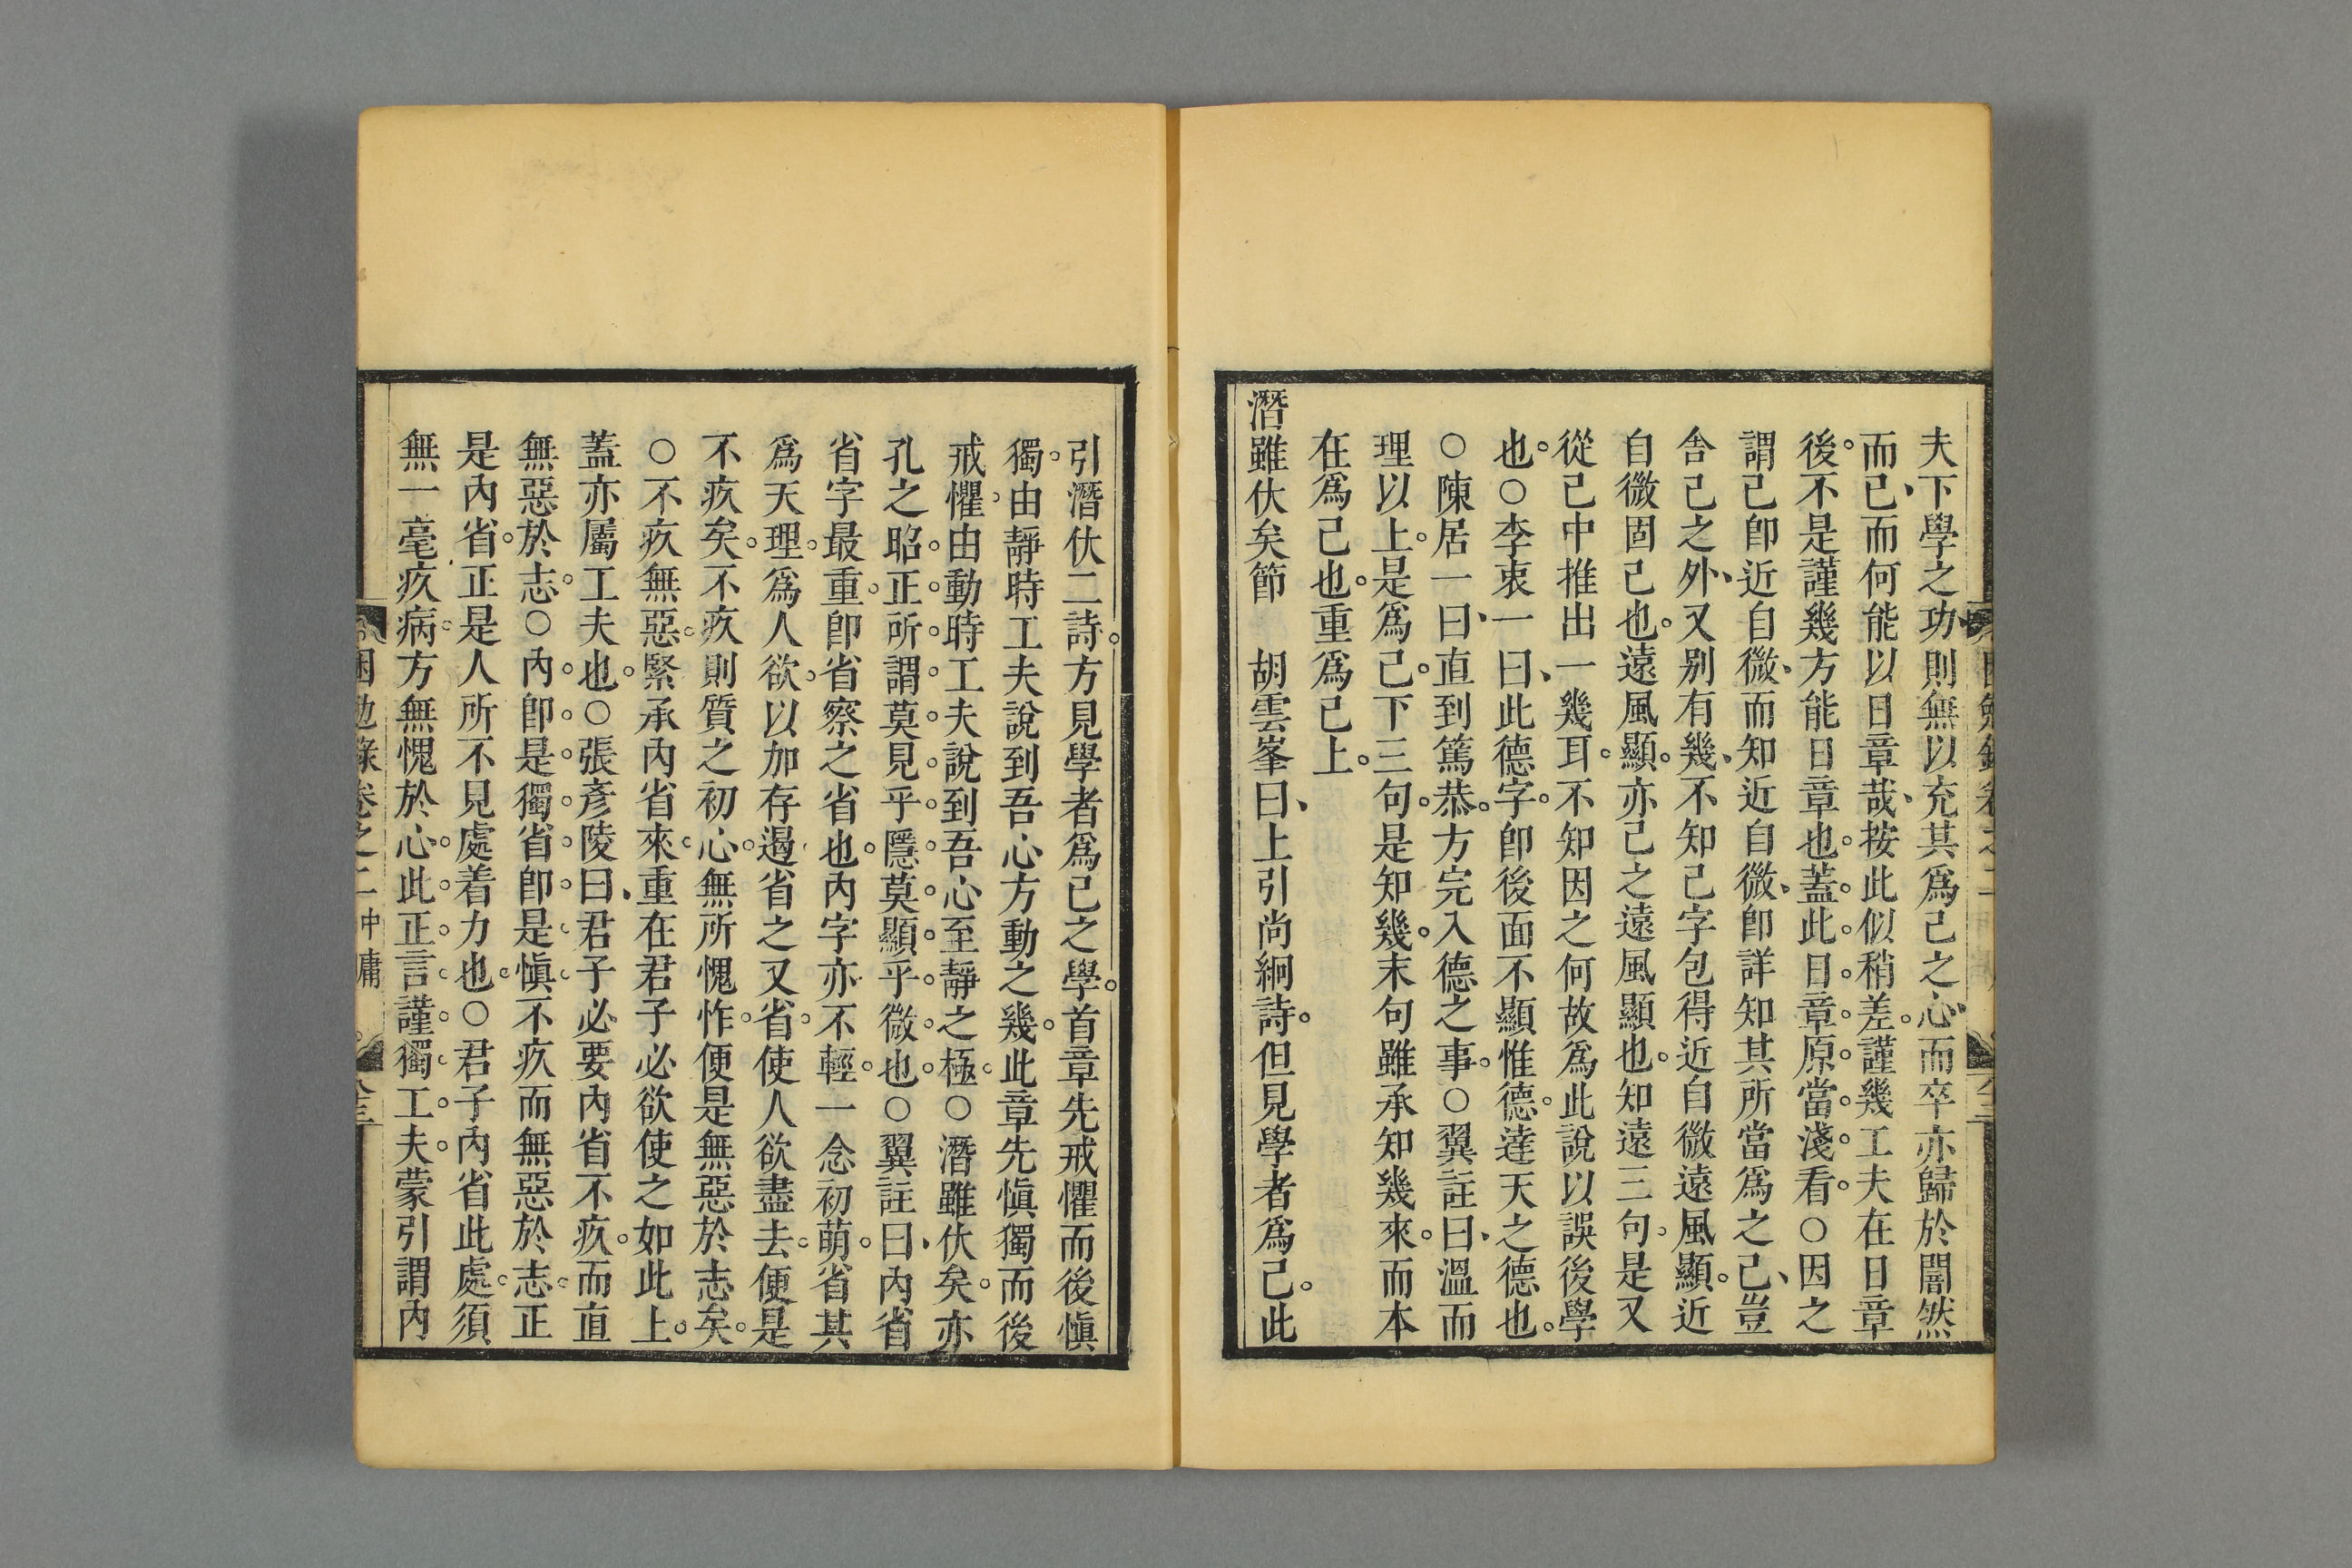 夫下學之功、則無以充其爲己之心、而卒亦歸於闇然
而已、而何能以日章哉、按此似稍差。謹幾工夫在日章
後。不是謹幾方能日章也。蓋此日章原當淺看。○因之
謂己卽近自微、而知近自微、卽詳知其所當爲之己、豈
舍己之外、又别有幾、不知己字包得近自微遠風顯。近
自微固己也。遠風顯。亦己之遠風顯也。知遠三句。是又
從己中推出一幾耳。不知因之何故爲此說以誤後學
也。○李衷一曰、此德字。卽後面不顯惟德。達天之德也。
○陳居一曰、直到篤恭。方完入德之事。○翼註曰、溫而
理以上。是爲己。下三句。是知幾。末句雖承知幾來。而本
在爲己也。重爲己上。
潛雖伏矣節　胡雲峯曰、上引尚絅詩。但見學者爲己。此
引潛伏二詩。方見學者爲己之學。首章先戒懼而後愼
獨。由靜時工夫說到吾心方動之幾。此章先愼獨而後
戒懼。由動時工夫說到吾心至靜之極。○潛雖伏矣。亦
孔之昭。正所謂莫見乎隱。莫顯乎微也。○翼註曰、內省
省字最重。卽省察之省也。內字亦不輕。一念初萌。省其
爲天理。爲人欲。以加存遏。省之又省。使人欲盡去。便是
不疚矣。不疚則質之初心。無所愧怍。便是無惡於志矣。
○不疚無惡。緊承內省來。重在君子必欲使之如此上。
蓋亦屬工夫也。○張彥陵曰、君子必要內省不疚。而直
無惡於志。○內卽是獨。省卽是愼。不疚而無惡於志。正
是內省。正是人所不見處着力也。○君子內省此處。須
無一毫疚病。方無愧於心。此正言謹獨工夫。蒙引謂內
困勉錄卷之二 中庸